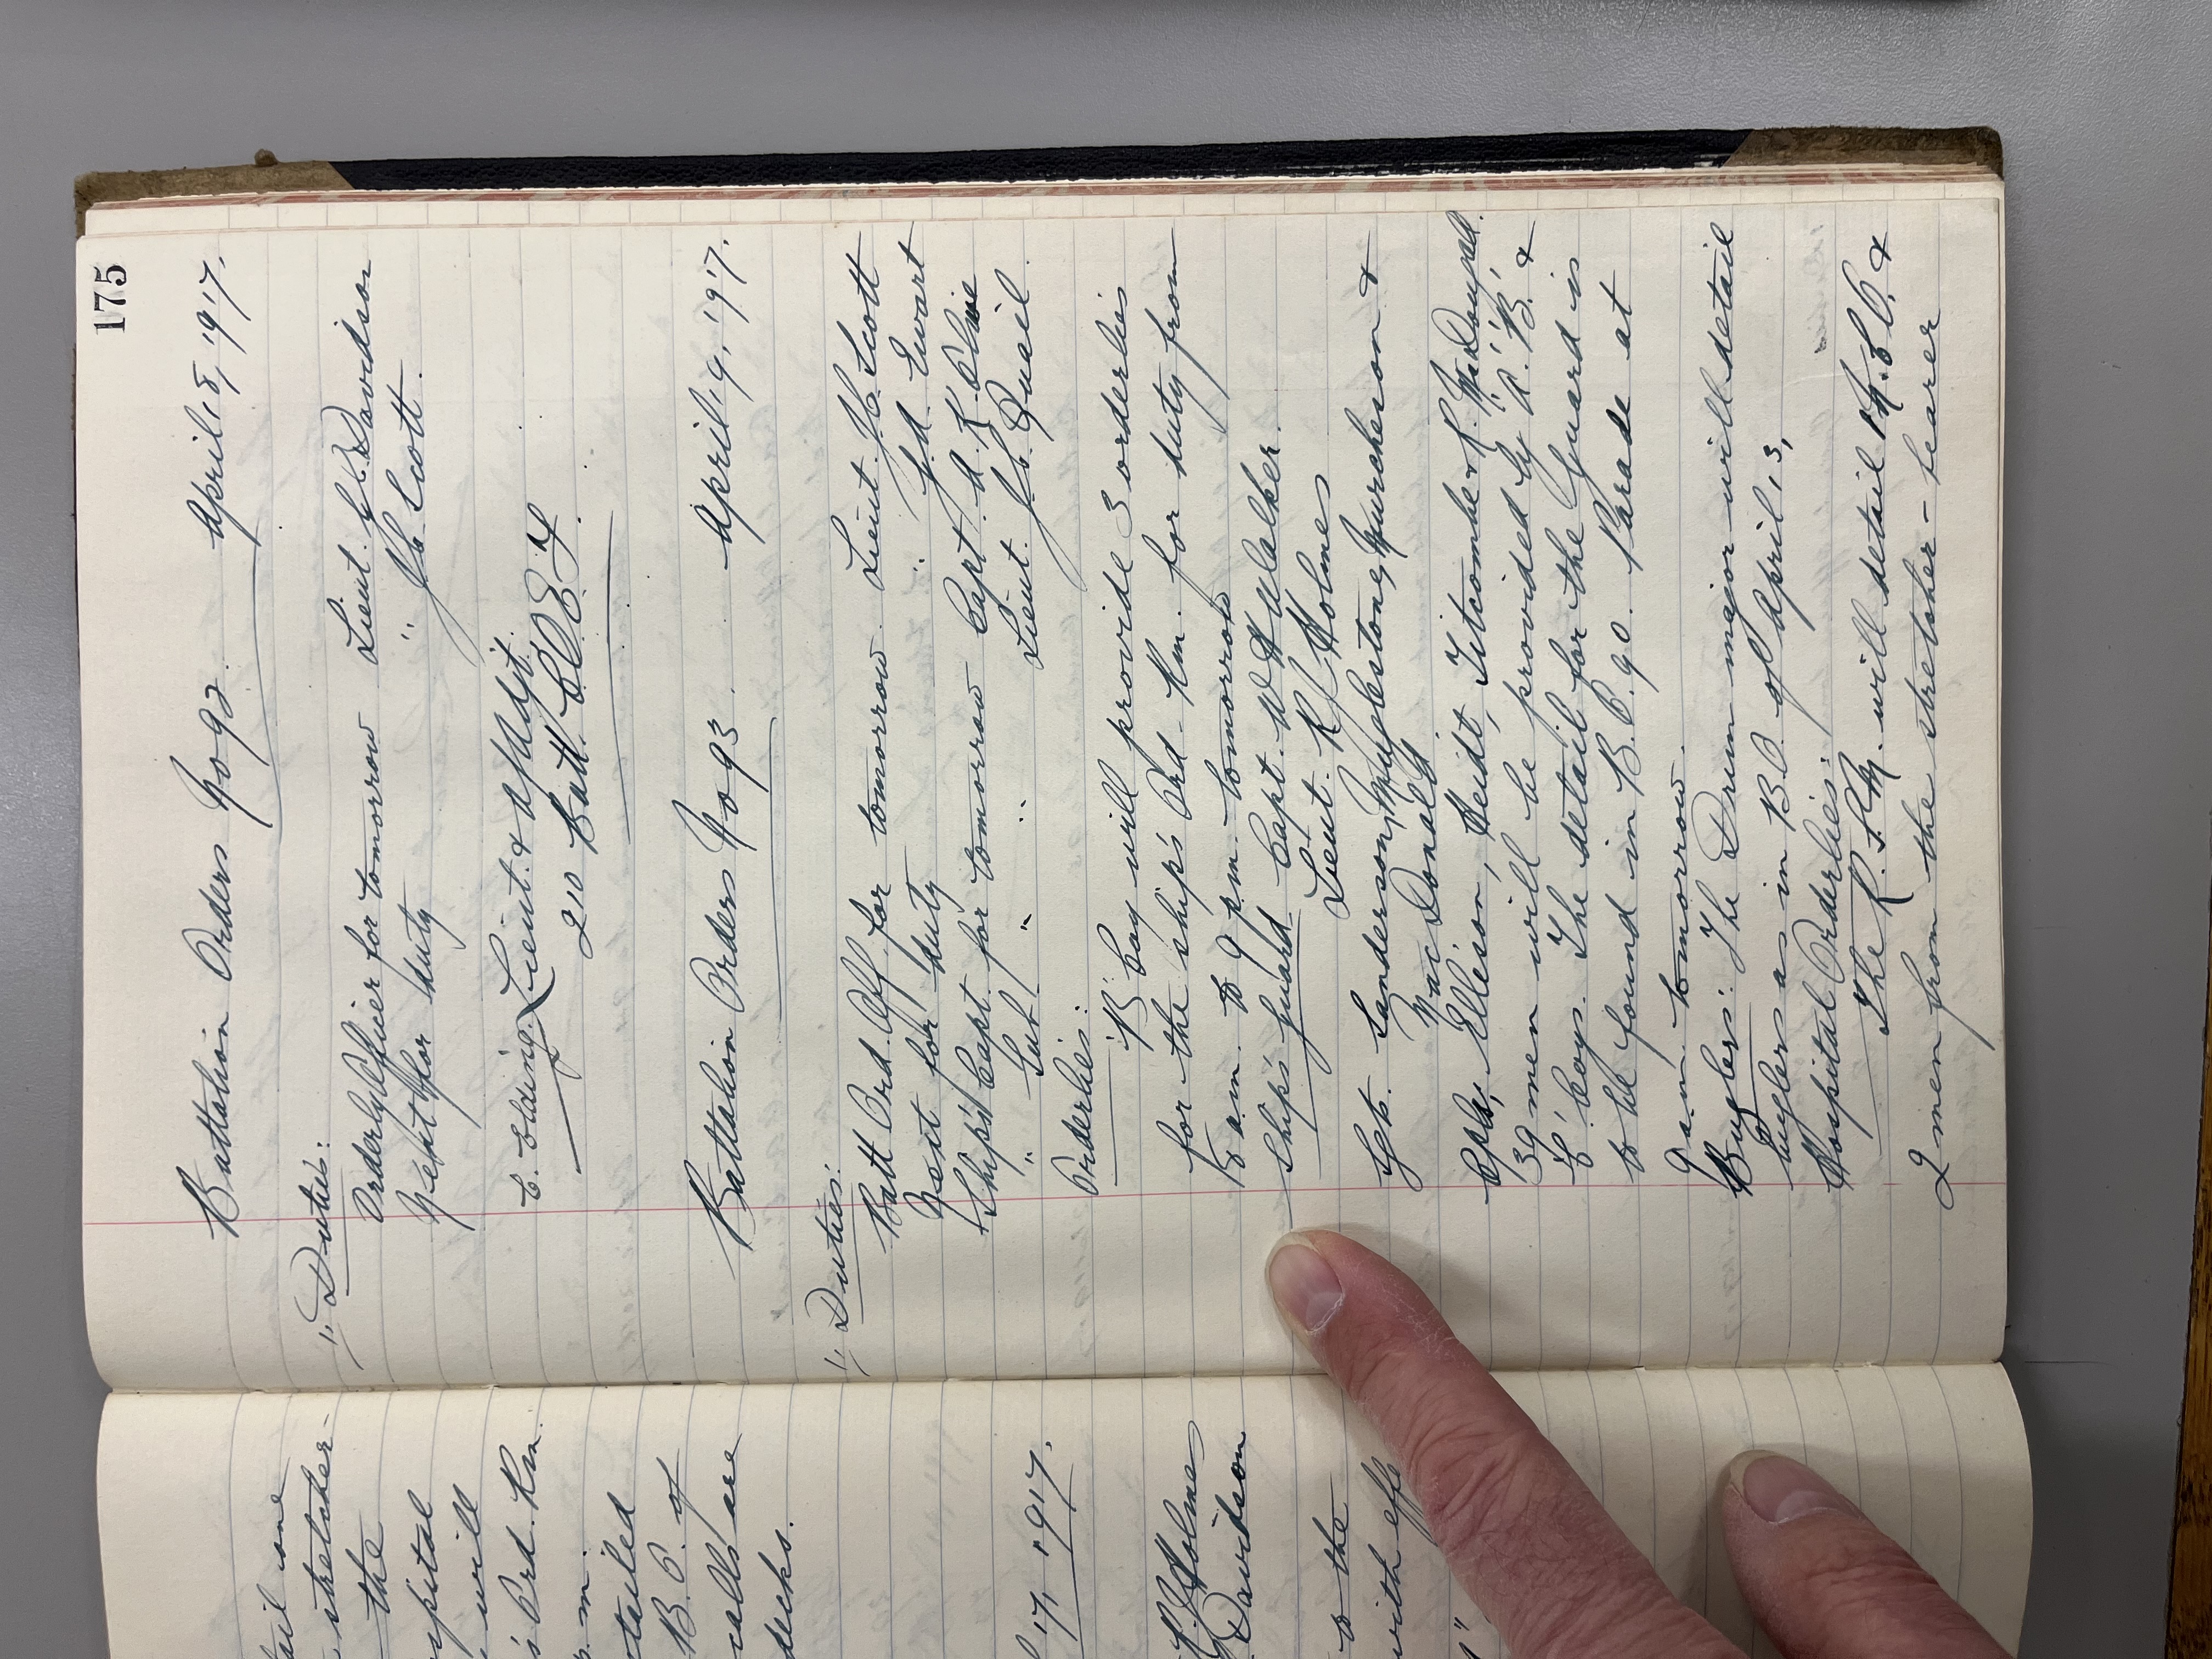 tail one
stretcher-
the
spital
will
's Ord. Rm.
p.m.
tailed
B.O. of
calls are
decks.
17, 1917.
Holmes
Davidson
to the
with effe
175
Battalion Orders No 92. April, 18, 1917.
1, Duties:
Orderly Officer for tomorrow Lieut. Davidson
Next for duty " Scott.
C. Elding, Lieut. & A/Adjt.
210 Batt. C.E.F.
Battalion Orders No 93. April, 19, 1917.
1, Duties:
Batt Ord. Off. for tomorrow. Lieut. Scott
Next for duty " Ewart
Ship's Capt. for tomorrow Capt. A. K. Cline
" Sub. " " Lieut. Quail.
Orderlies:
'B' Coy will provide 3 orderlies
for the ship's Ord. Rm. for duty from
5 a.m. to 9 p.m. tomorrow
Ship's guard Capt. W H Walker.
Lieut. R J Holmes
Sgts. Sanderson, Mugglestone, Murcheson &
MacDonald
Cpls, Elleson, Heidt, Titcombe & McDougall.
39 men will be provided by 'A', 'B', &
'C' Coys. The detail for the Guard is
to be found in B.O. 90. Parade at
9 a.m. tomorrow.
Buglers: The Drum major will detail
buglers as in B.O. of April, 13,
Hospital Orderlies:
The R.S.M. will detail 1 N.C.O. &
2 men from the stretcher-bearer